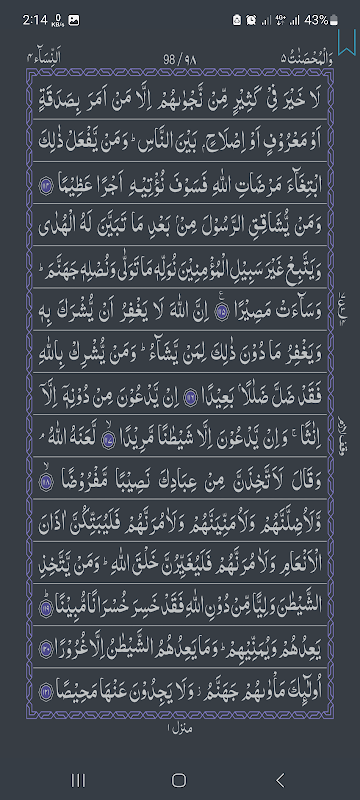 2:14 0 KB/s 4G+ 43%
اَلنِّسَآء ٤ 98 / ٩٨ وَالْمُحْصَنٰتُ ٥
لَا خَيْرَ فِيْ كَثِيْرٍ مِّنْ نَّجْوٰىهُمْ اِلَّا مَنْ اَمَرَ بِصَدَقَةٍ
اَوْ مَعْرُوْفٍ اَوْ اِصْلَاحٍۭ بَيْنَ النَّاسِ ؕ وَمَنْ يَّفْعَلْ ذٰلِكَ
ابْتِغَآءَ مَرْضَاتِ اللّٰهِ فَسَوْفَ نُؤْتِيْهِ اَجْرًا عَظِيْمًا ﴿١١٤﴾
وَمَنْ يُّشَاقِقِ الرَّسُوْلَ مِنْۢ بَعْدِ مَا تَبَيَّنَ لَهُ الْهُدٰى
وَيَتَّبِعْ غَيْرَ سَبِيْلِ الْمُؤْمِنِيْنَ نُوَلِّهٖ مَا تَوَلّٰى وَنُصْلِهٖ جَهَنَّمَ ؕ
وَسَآءَتْ مَصِيْرًا ﴿١١٥﴾ اِنَّ اللّٰهَ لَا يَغْفِرُ اَنْ يُّشْرَكَ بِهٖ
وَيَغْفِرُ مَا دُوْنَ ذٰلِكَ لِمَنْ يَّشَآءُ ؕ وَمَنْ يُّشْرِكْ بِاللّٰهِ
فَقَدْ ضَلَّ ضَلٰلًاۢ بَعِيْدًا ﴿١١٦﴾ اِنْ يَّدْعُوْنَ مِنْ دُوْنِهٖٓ اِلَّآ
اِنٰثًا ۚ وَاِنْ يَّدْعُوْنَ اِلَّا شَيْطٰنًا مَّرِيْدًا ﴿١١٧﴾ لَّعَنَهُ اللّٰهُ ۘ
وَقَالَ لَاَتَّخِذَنَّ مِنْ عِبَادِكَ نَصِيْبًا مَّفْرُوْضًا ﴿١١٨﴾
وَّلَاُضِلَّنَّهُمْ وَلَاُمَنِّيَنَّهُمْ وَلَاٰمُرَنَّهُمْ فَلَيُبَتِّكُنَّ اٰذَانَ
الْاَنْعَامِ وَلَاٰمُرَنَّهُمْ فَلَيُغَيِّرُنَّ خَلْقَ اللّٰهِ ؕ وَمَنْ يَّتَّخِذِ
الشَّيْطٰنَ وَلِيًّا مِّنْ دُوْنِ اللّٰهِ فَقَدْ خَسِرَ خُسْرَانًا مُّبِيْنًا ﴿١١٩﴾
يَعِدُهُمْ وَيُمَنِّيْهِمْ ؕ وَمَا يَعِدُهُمُ الشَّيْطٰنُ اِلَّا غُرُوْرًا ﴿١٢٠﴾
اُولٰٓئِكَ مَاْوٰىهُمْ جَهَنَّمُ ؗ وَلَا يَجِدُوْنَ عَنْهَا مَحِيْصًا ﴿١٢١﴾
منزل ١